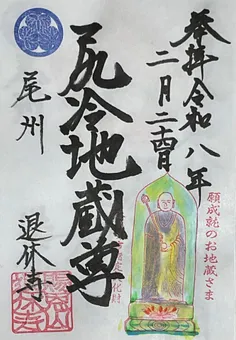 奉拝令和八年
二月二十四日
願成就のお地蔵さま
尻冷地蔵尊
尾州
退休寺